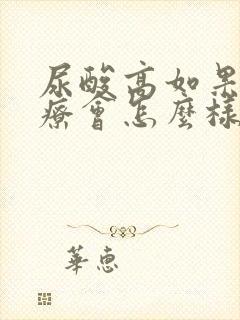 尿酸高如果
療會怎麼樣
華惠